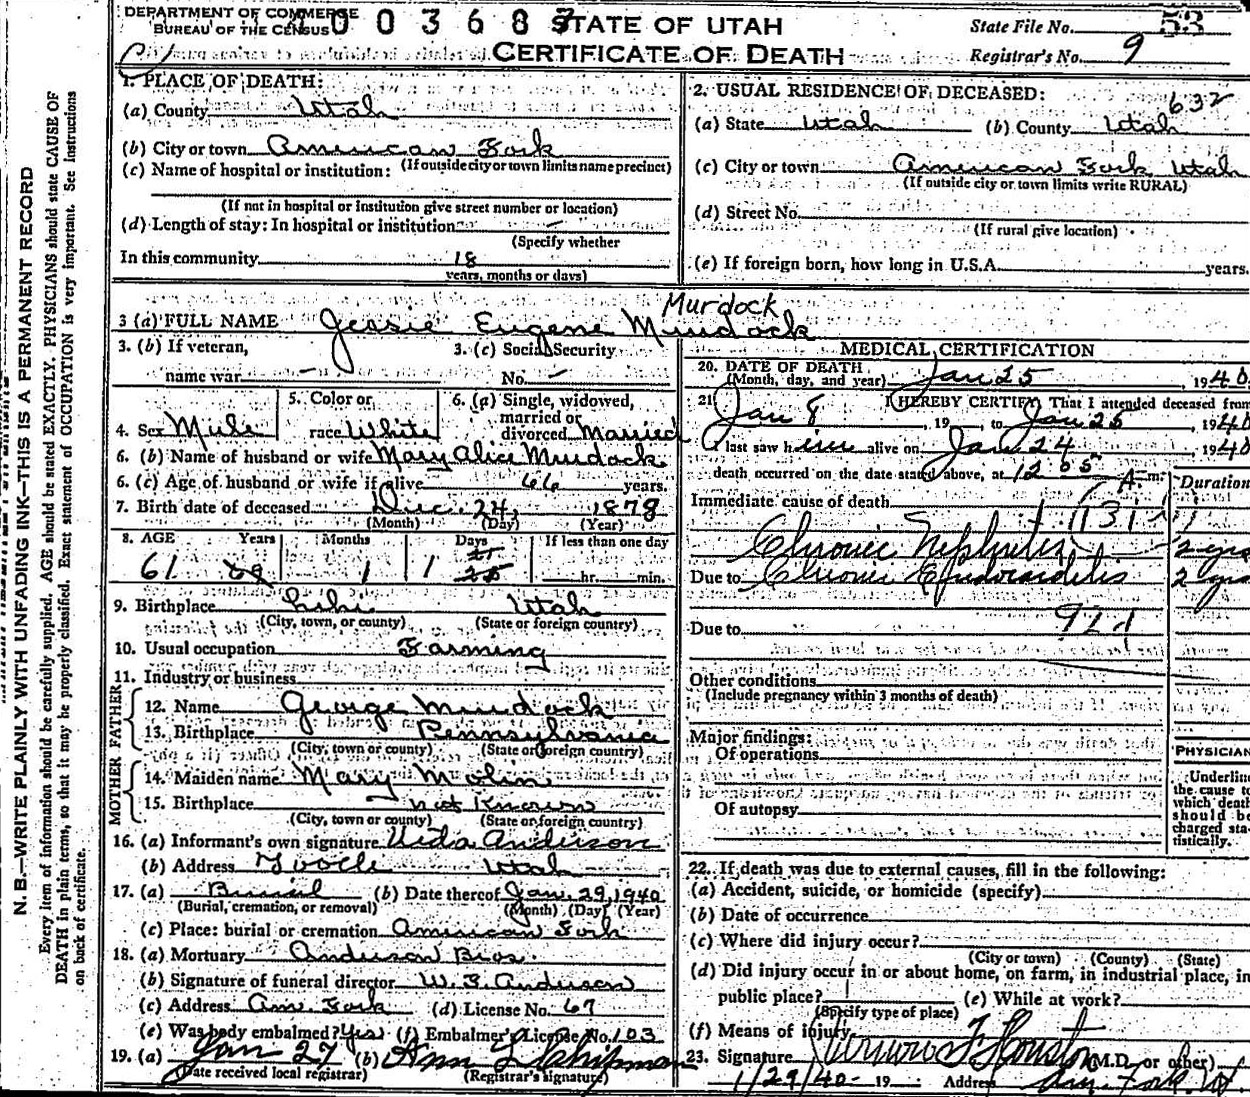 DEPARTMENT OF COMMERCE
BUREAU OF THE CENSUS
0 0 3 6 8 7
STATE OF UTAH
CERTIFICATE OF DEATH
State File No. 53
Registrar's No. 9
N. B.—WRITE PLAINLY WITH UNFADING INK—THIS IS A PERMANENT RECORD
Every item of information should be carefully supplied. AGE should be stated EXACTLY. PHYSICIANS should state CAUSE OF
DEATH in plain terms, so that it may be properly classified. Exact statement of OCCUPATION is very important. See Instructions
on back of certificate.
1. PLACE OF DEATH:
(a) County Utah
(b) City or town American Fork
(If outside city or town limits name precinct)
(c) Name of hospital or institution:
(If not in hospital or institution give street number or location)
(d) Length of stay: In hospital or institution —
(Specify whether
In this community 18
years, months or days)
2. USUAL RESIDENCE OF DECEASED:
632
(a) State Utah (b) County Utah
(c) City or town American Fork Utah
(If outside city or town limits write RURAL)
(d) Street No.
(If rural give location)
(e) If foreign born, how long in U.S.A. years.
Murdock
3 (a) FULL NAME Jessie Eugene Murdock
3. (b) If veteran,
name war —
3. (c) Social Security
No. —
4. Sex Male
5. Color or
race White
6. (a) Single, widowed,
married or
divorced Married
6. (b) Name of husband or wife Mary Alice Murdock
6. (c) Age of husband or wife if alive 66 years.
7. Birth date of deceased Dec. 24, 1878
(Month) (Day) (Year)
8. AGE Years Months Days If less than one day
61 1 1 hr. min.
9. Birthplace Lehi Utah
(City, town, or county) (State or foreign country)
10. Usual occupation Farming
11. Industry or business
FATHER
12. Name George Murdock
13. Birthplace Pennsylvania
(City, town or county) (State or foreign country)
MOTHER
14. Maiden name Mary Molin
15. Birthplace — not Known
(City, town or county) (State or foreign country)
16. (a) Informant's own signature Anderson
(b) Address Tooele Utah
17. (a) Burial (b) Date thereof Jan. 29, 1940
(Burial, cremation, or removal) (Month) (Day) (Year)
(c) Place: burial or cremation American Fork
18. (a) Mortuary Anderson Bros.
(b) Signature of funeral director W. S. Anderson
(c) Address Am. Fork (d) License No. 67
(e) Was body embalmed? Yes (f) Embalmer's License No. 103
19. (a) Jan 27 (b) Shipman
(Date received local registrar) (Registrar's signature)
MEDICAL CERTIFICATION
20. DATE OF DEATH
(Month, day, and year) Jan 25, 1940
21. I HEREBY CERTIFY, That I attended deceased from
Jan 8, 19 to Jan 25, 1940
I last saw him alive on Jan 24, 1940
death occurred on the date stated above, at 12 05 A m.
Duration
Immediate cause of death
131
Chronic Nephritis 2 yrs
Due to Chronic Endocarditis 2 yrs
Due to
Other conditions
(Include pregnancy within 3 months of death)
Major findings:
Of operations
Of autopsy
PHYSICIAN
Underline
the cause to
which death
should be
charged sta-
tistically.
22. If death was due to external causes, fill in the following:
(a) Accident, suicide, or homicide (specify)
(b) Date of occurrence
(c) Where did injury occur?
(City or town) (County) (State)
(d) Did injury occur in or about home, on farm, in industrial place, in
public place? (e) While at work?
(Specify type of place)
(f) Means of injury
23. Signature Houston (M.D. or other)
1/29/40 19 Address Am. Fork Ut